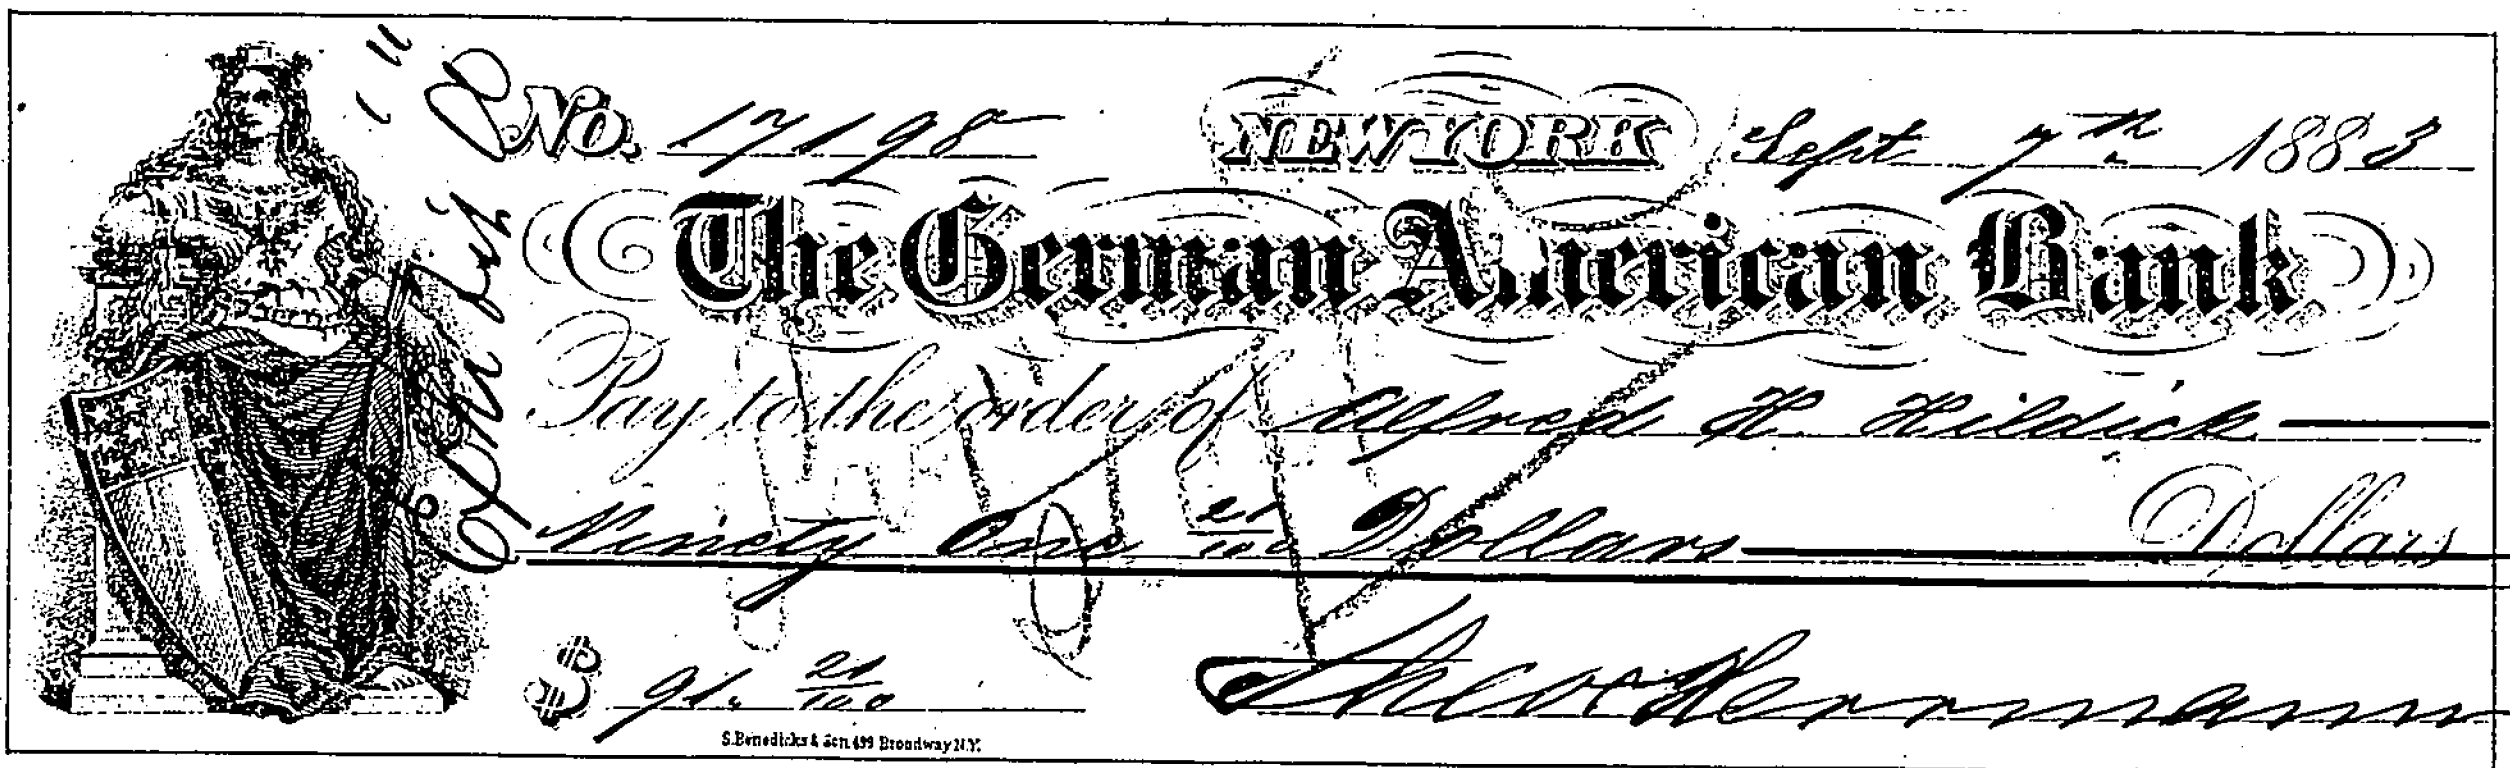 No. 17198 NEW YORK Sept 7th 1883
The German American Bank
Pay to the order of Alfred H. Hildick
Ninety One 21/100 Dollars Dollars
$ 91. 21/100 Theo Herrmann
S. Benedicks & Son 499 Broadway N.Y.